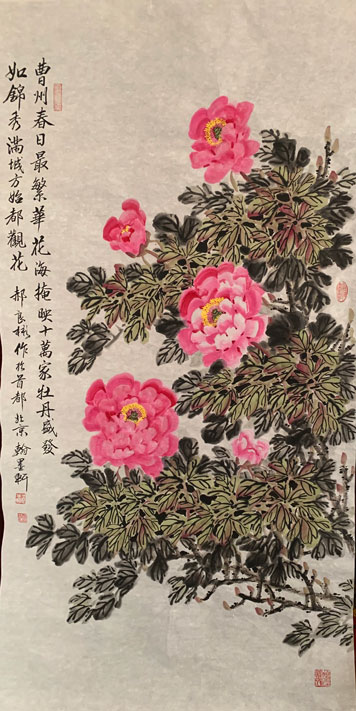 曹州春日最繁華花海掩映十萬家牡丹盛發
如錦秀滿城方始都觀花 郝良彬作於首都北京翰墨軒